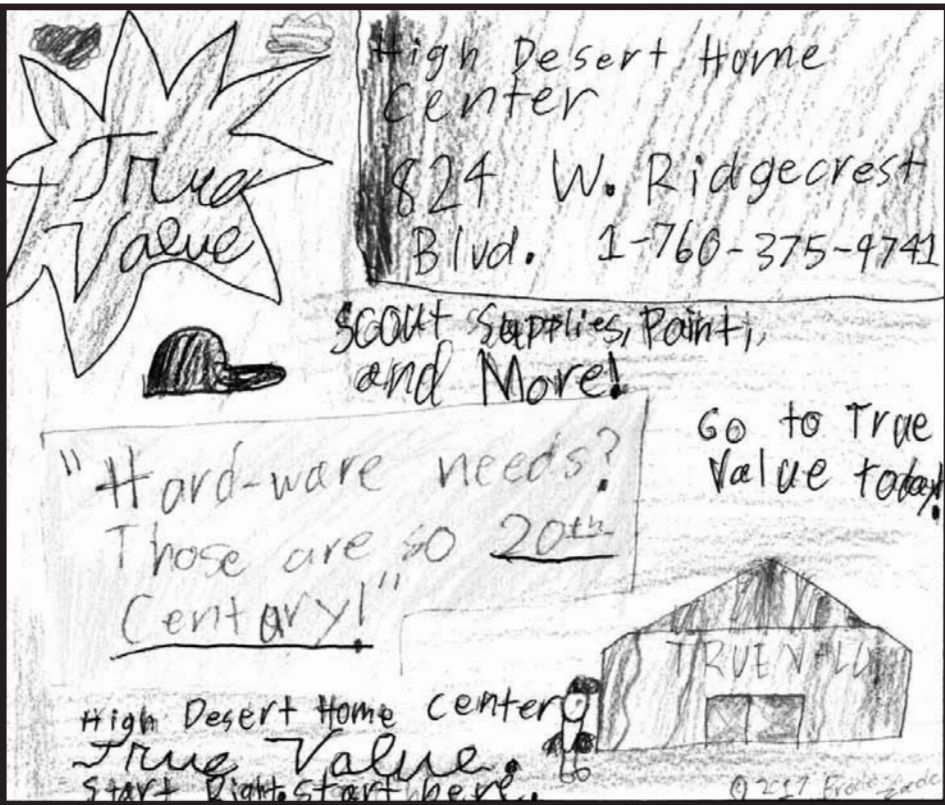 True
Value
High Desert Home
Center
824 W. Ridgecrest
Blvd. 1-760-375-4741
Scout Supplies, Paint,
and More!
Go to True
Value today!
"Hard-ware needs?
Those are so 20th
Century!"
TRUE VALU
High Desert Home Center
True Value.
Start Right. Start here.
© 2017